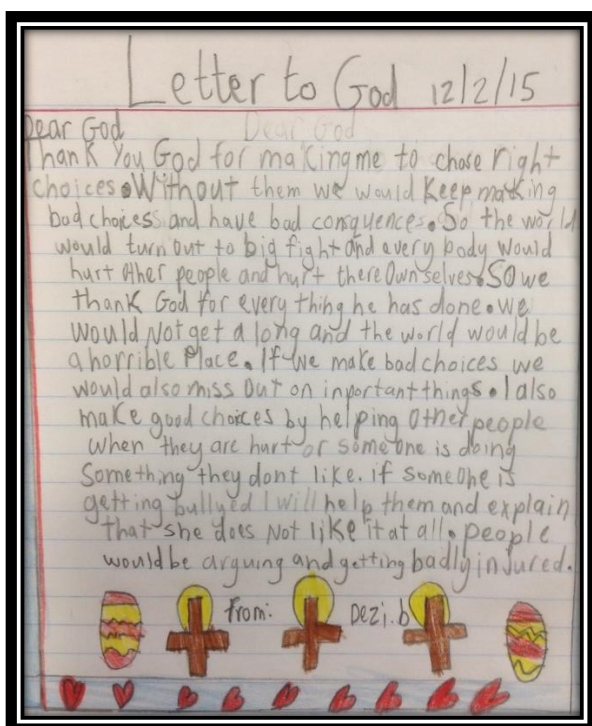 Letter to God 12/2/15
Dear God Dear God
Thank You God for making me to chose right
choices. Without them we would Keep making
bad choicess and have bad consquences. So the world
would turn out to big fight and every body would
hurt other people and hurt there own selves. So we
thank God for every thing he has done. We
would Not get a long and the world would be
a horrible Place. If we make bad choices we
would also miss out on inportant things. I also
make good choices by helping other people
when they are hurt or some one is doing
Something they dont like. if someone is
getting bullyed I will help them and explain
that she does Not like it at all. people
would be arguing and getting badly injured.
From: Dezi.b